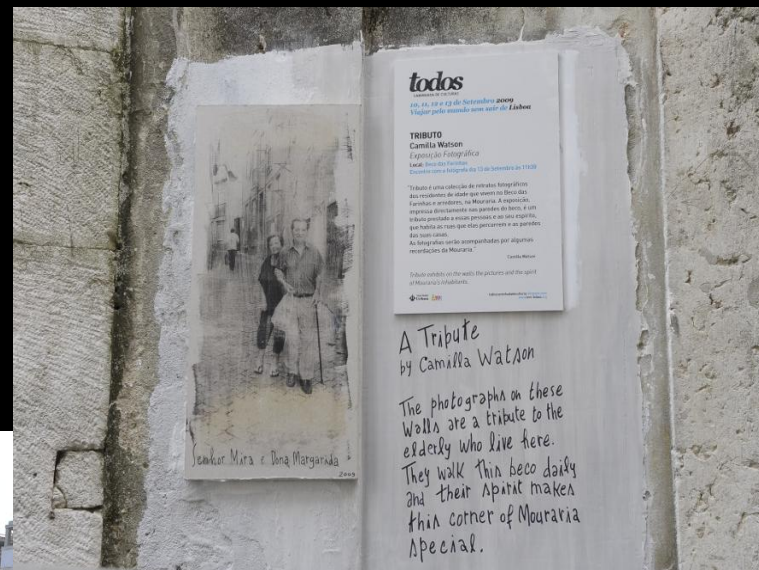 Senhor Mira e Dona Margarida
2009
todos
CAMINHADA DE CULTURAS
10, 11, 12 e 13 de Setembro 2009
Viajar pelo mundo sem sair de Lisboa
TRIBUTO
Camilla Watson
Exposição Fotográfica
Local: Beco das Farinhas
Encontro com a fotógrafa dia 13 de Setembro às 11h30
"Tributo é uma colecção de retratos fotográficos
dos residentes de idade que vivem no Beco das
Farinhas e arredores, na Mouraria. A exposição,
impressa directamente nas paredes do beco, é um
tributo prestado a essas pessoas e ao seu espírito,
que habita as ruas que elas percorrem e as paredes
das suas casas.
As fotografias serão acompanhadas por algumas
recordações da Mouraria."
Camilla Watson
Tribute exhibits on the walls the pictures and the spirit
of Mouraria's inhabitants.
A Tribute
by Camilla Watson
The photographs on these
Walls are a tribute to the
elderly who live here.
They walk this beco daily
and their spirit makes
this corner of Mouraria
special.